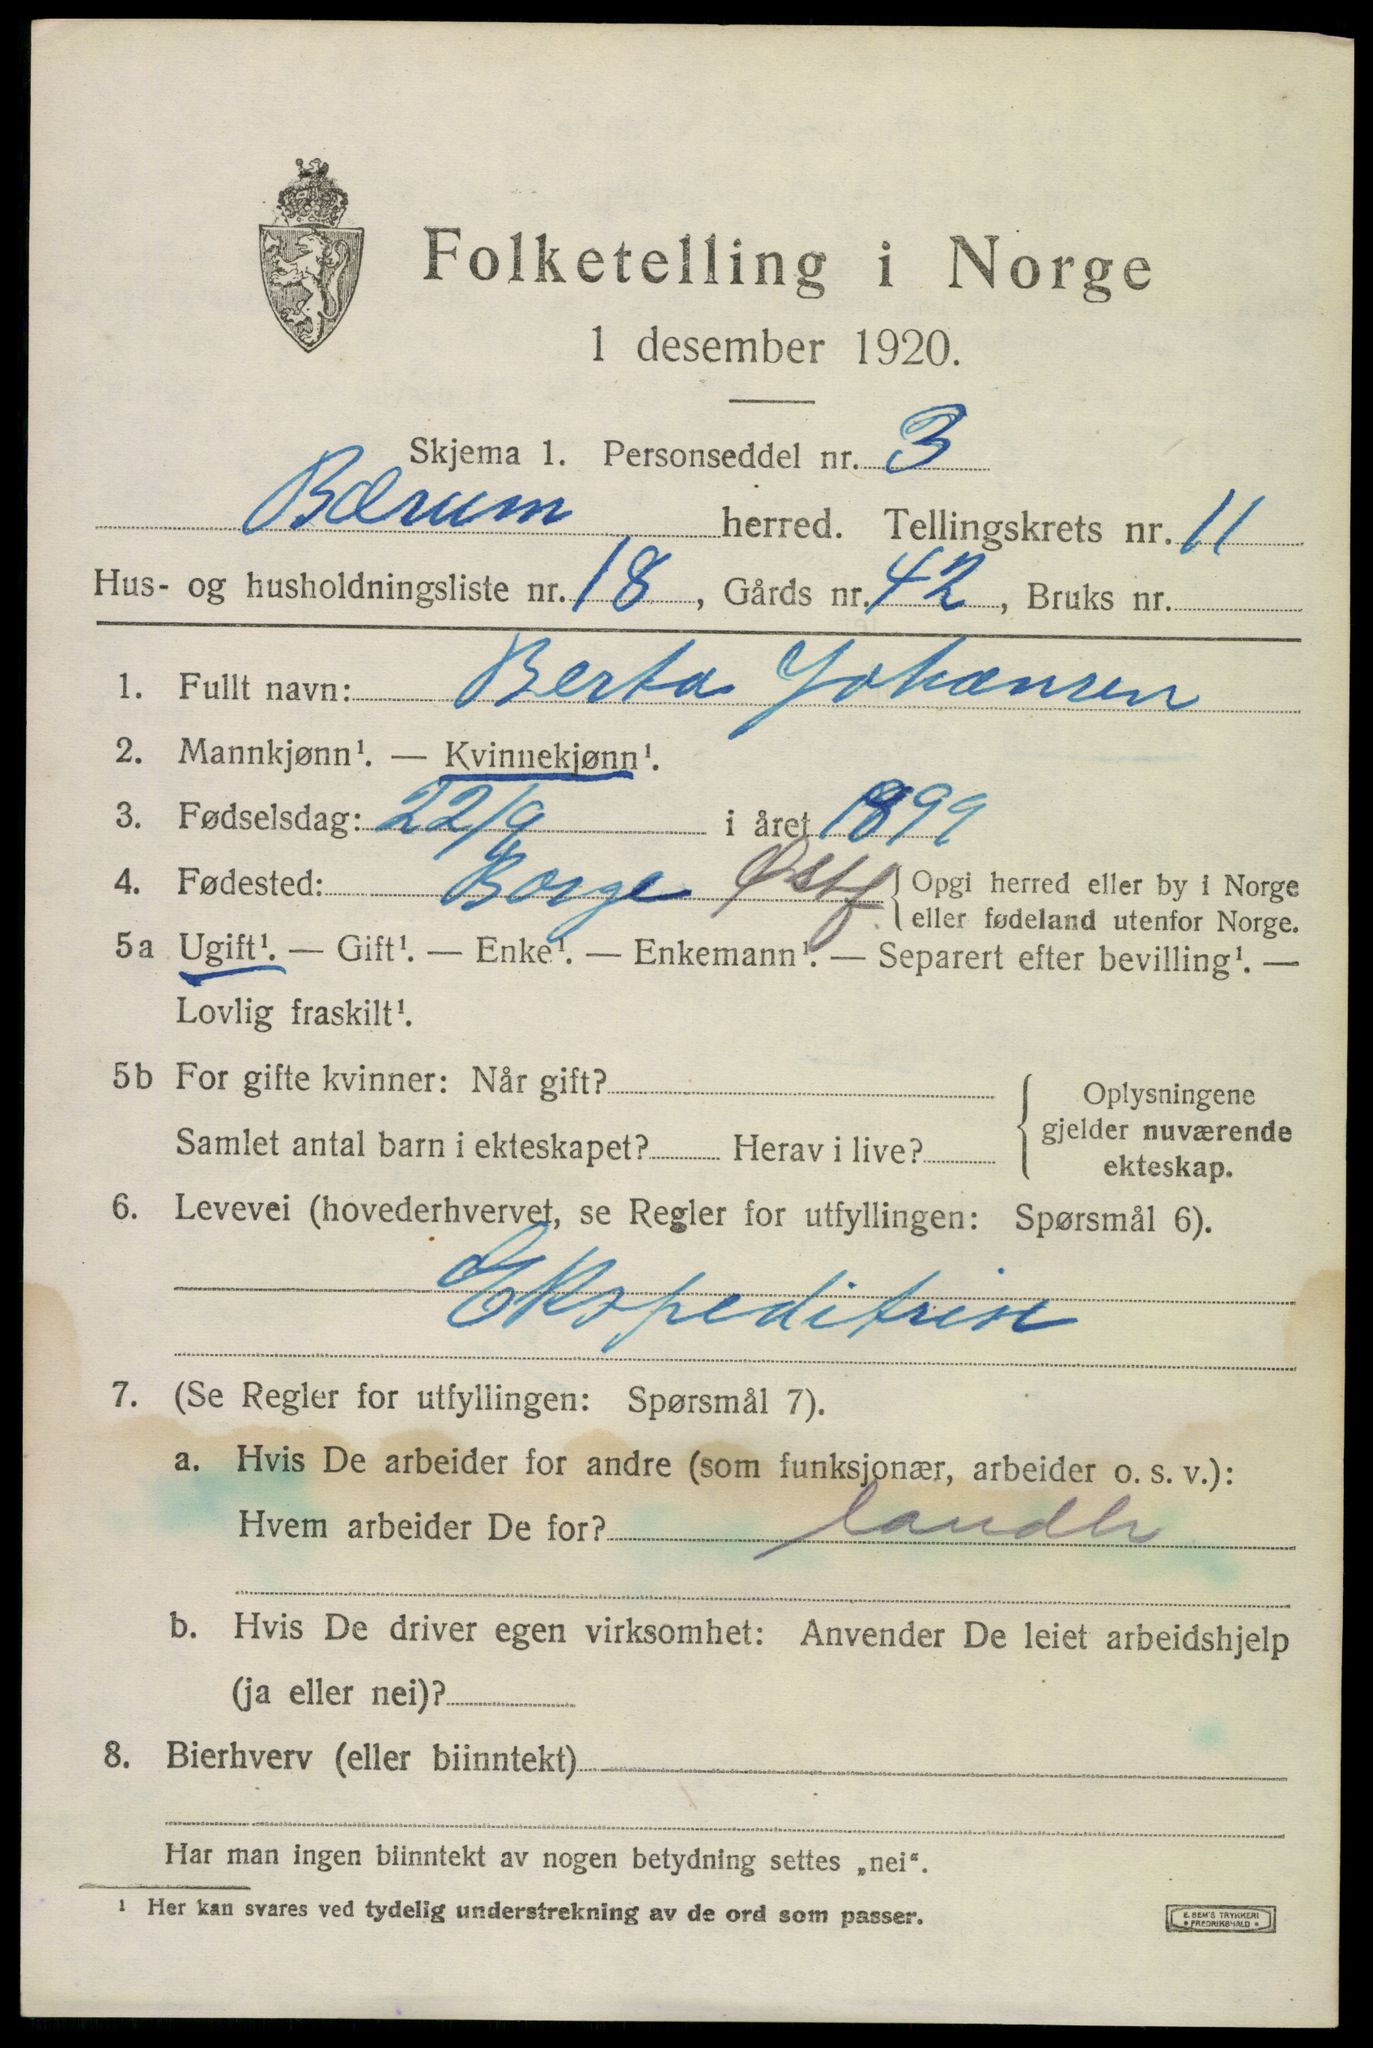 Folketelling i Norge
1 desember 1920.
Skjema 1. Personseddel nr. 3
Bærum herred. Tellingskrets nr. 11
Hus- og husholdningsliste nr. 18, Gårds nr. 42, Bruks nr.
1. Fullt navn: Berta Johansen
2. Mannkjønn¹. — Kvinnekjønn¹.
3. Fødselsdag: 22/9 i året 1899
4. Fødested: Borge Østf { Opgi herred eller by i Norge
eller fødeland utenfor Norge.
5a Ugift¹. — Gift¹. — Enke¹. — Enkemann¹. — Separert efter bevilling¹. —
Lovlig fraskilt¹.
5b For gifte kvinner: Når gift?
Samlet antal barn i ekteskapet? Herav i live?
{ Oplysningene
gjelder nuværende
ekteskap.
6. Levevei (hovederhvervet, se Regler for utfyllingen: Spørsmål 6).
Ekspeditrise
7. (Se Regler for utfyllingen: Spørsmål 7).
a. Hvis De arbeider for andre (som funksjonær, arbeider o. s. v.):
Hvem arbeider De for? landh
b. Hvis De driver egen virksomhet: Anvender De leiet arbeidshjelp
(ja eller nei)?
8. Bierhverv (eller biinntekt)
Har man ingen biinntekt av nogen betydning settes „nei“.
¹ Her kan svares ved tydelig understrekning av de ord som passer.
E. SEM'S TRYKKERI
• FREDRIKSHALD •